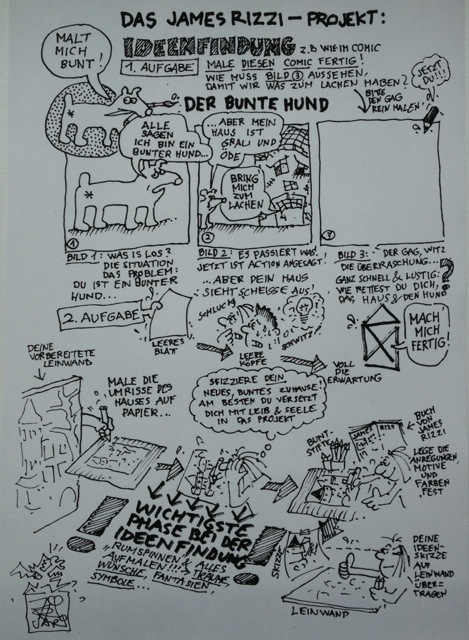 DAS JAMES RIZZI - PROJEKT:
MALT
MICH
BUNT!
IDEENFINDUNG z.B WIE IM COMIC
1. AUFGABE
MALE DIESEN COMIC FERTIG!
WIE MUSS BILD ③ AUSSEHEN,
DAMIT WIR WAS ZUM LACHEN HABEN?
JETZT
DU!!!
BITTE
DEN GAG
REIN MALEN!
DER BUNTE HUND
ALLE
SAGEN
ICH BIN EIN
BUNTER HUND...
...ABER MEIN
HAUS IST
GRAU UND
ÖDE
BRING
MICH
ZUM
LACHEN
1
2
3
BILD 1: WAS IS LOS?
DIE SITUATION
DAS PROBLEM:
DU IST EIN BUNTER
HUND...
BILD 2: ES PASSIERT WAS!
JETZT IST ACTION ANGESAGT!
...ABER DEIN HAUS
SIEHT SCHEISSE AUS!
BILD 3: DER GAG, WITZ
DIE ÜBERRASCHUNG...
GANZ SCHNELL & LUSTIG:
WIE RETTEST DU DICH,
DAS HAUS & DEN HUND
?
2. AUFGABE
LEERES
BLATT
SCHLUCK
LEERE
KÖPFE
SCHWITZ
VOLL
DIE
ERWARTUNG
MACH
MICH
FERTIG!
DEINE
VORBEREITETE
LEINWAND
MALE DIE
UMRISSE DES
HAUSES AUF
PAPIER...
SKIZZIERE DEIN
NEUES, BUNTES ZUHAUSE!
AM BESTEN DU VERSETZT
DICH MIT LEIB & SEELE
IN DAS PROJEKT
BUNT-
STIFTE
JAMES
RIZZI
BUCH
VON
JAMES
RIZZI
LEGE DIE
ANREGUNGEN,
MOTIVE
UND
FARBEN
FEST
WICHTIGSTE
PHASE BEI DER
IDEENFINDUNG
"RUMSPINNEN & ALLES
AUFMALEN!!!" → TRÄUME,
WÜNSCHE, FANTASIEN,
SYMBOLE...
SKIZZE
LEINWAND
DEINE
IDEEN-
SKIZZE
AUF
LEINWAND
ÜBER-
TRAGEN